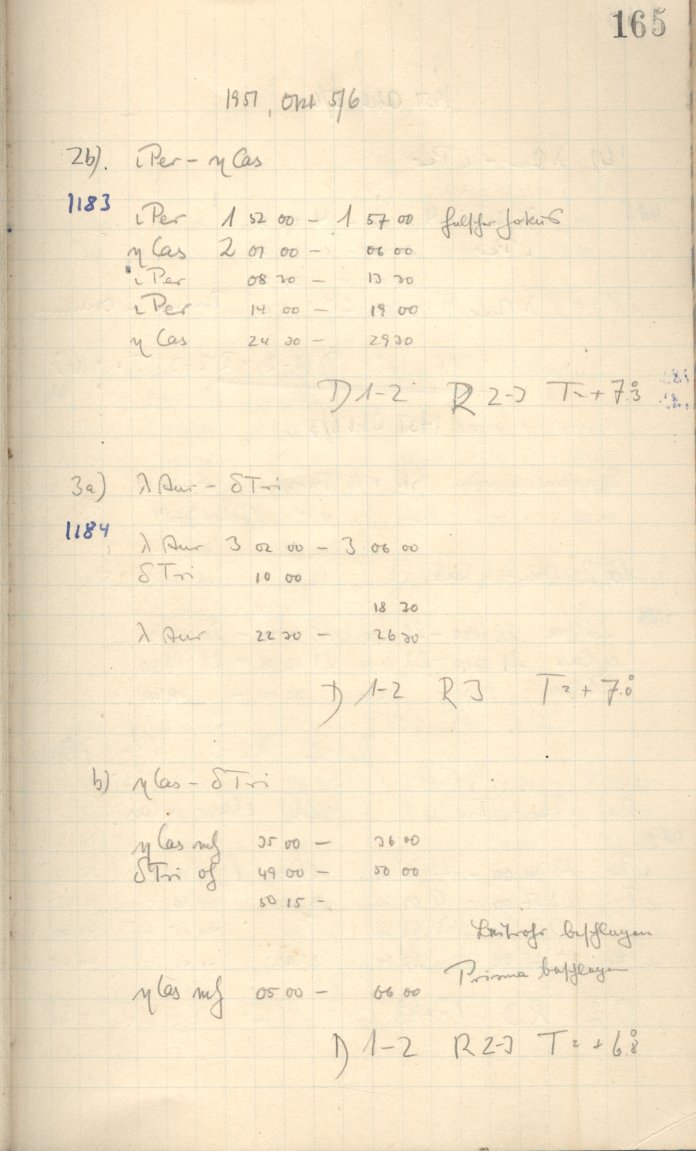 165
1951, Okt 5/6
2b). ι Per – η Cas
1183
ι Per 1 52 00 – 1 57 00 falscher Fokus
η Cas 2 01 00 – 06 00
ι Per 08 30 – 13 30
ι Per 14 00 – 19 00
η Cas 24 30 – 29 30
D 1-2 R 2-3 T = + 7.°3
3a) λ Aur – δ Tri
1184
λ Aur 3 02 00 – 3 06 00
δ Tri 10 00
18 30
λ Aur 22 30 – 26 30
D 1-2 R 3 T = + 7.°0
b) η Cas – δ Tri
η Cas mf 35 00 – 36 00
δ Tri of 49 00 – 50 00
50 15 –
Leitrohr beschlagen
Prisma beschlagen
η Cas mf 05 00 – 06 00
D 1-2 R 2-3 T = + 6.°8